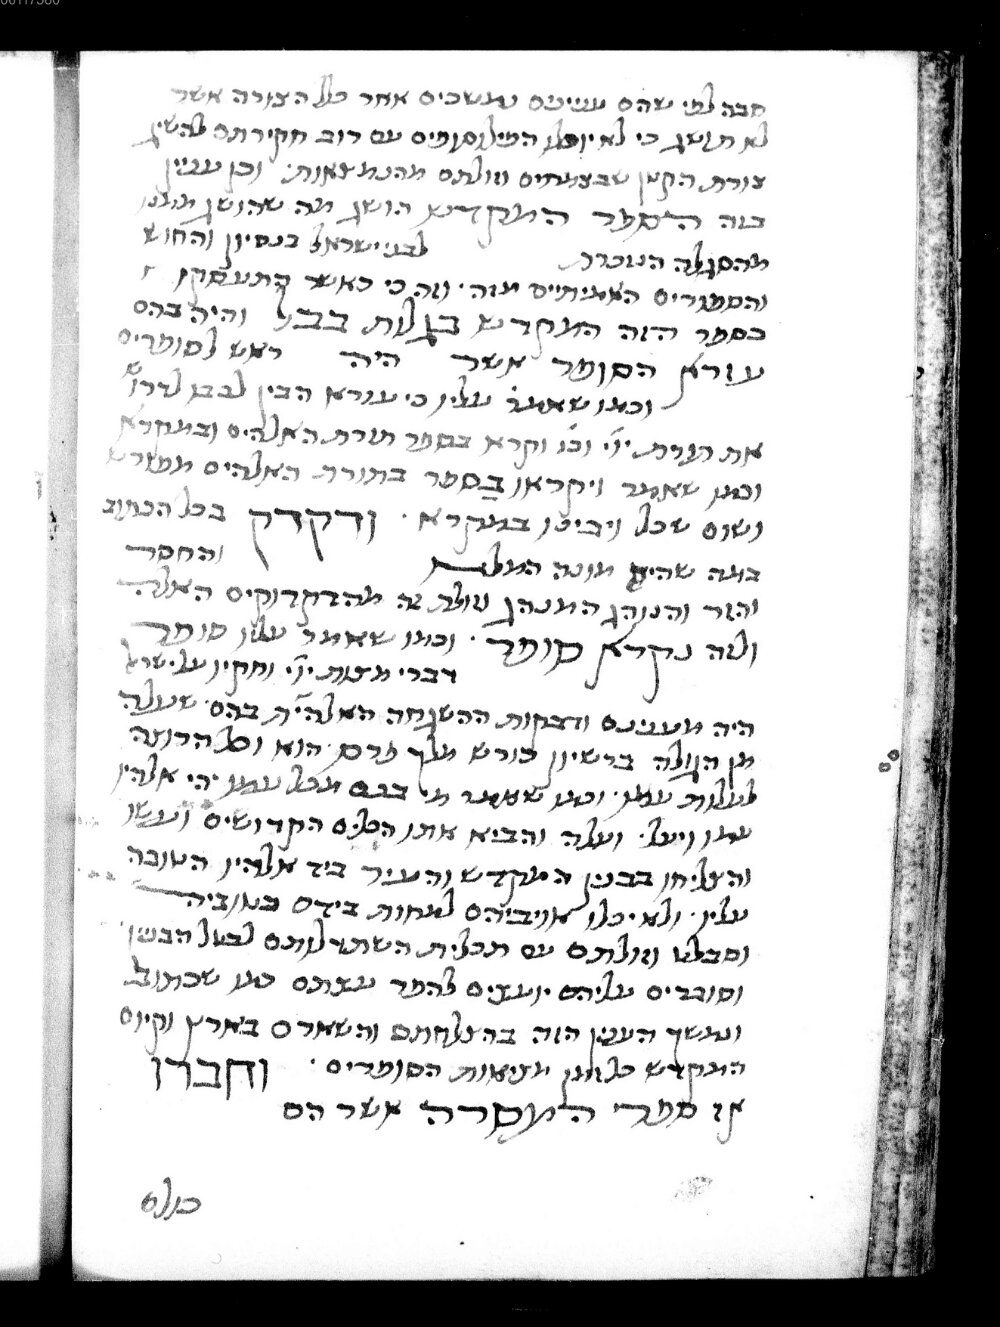 סבה למי שהם עניינים נמשכים אחר כלל הצורה אשר
לא תושג כי לא יוכלו הפילוסופים עם רוב חקירתם להשיג
צורת הקטן שבצמחים וזולתם מהנמצאות׃ וכן עניין
בזה הספר המקדש הושג מה שהושג ממנו
מהסגולה הנזכרת לבני ישראל בנסיון והחוש
והספורים האמיתיים מזה׳ וזה כי כאשר התעסקו
בספר הזה המקדש בגלות בבל והיה בהם
עזרא הסופר אשר היה ראש לסופרים
וכמו שאמר עליו כי עזרא הכין לבבו לדרוש
את תורת יי׳ וכו׳ וקרא בספר תורת האלהים ובמקרא
וכמו שאמר ויקראו בספר בתורת האלהים מפורש
ושום שכל ויבינו במקרא׳ ודקדק בכל הכתוב
בזה שהיה מונה המלות והחסר
והזר והנוהג המנהג וזולת זה מהדקדוקים האלה
ולזה נקרא סופר׳ וכמו שאמר עליו סופר
דברי מצות יי׳ וחקיו על ישראל
היה מענינם ודבקות ההשגחה האלהית בהם שעלה
מן הגולה ברשיון כורש מלך פרס הוא וכל הרוצה
לעלות עמו׳ וכמו שאמר מי בכם מכל עמו יהי אלהיו
עמו ויעל׳ ועלה והביא אתו הכלים הקדושים ועשו
והצליחו בבנין המקדש והעיר ביד אלהיו הטובה
עליו׳ ולא יכלו אויביהם למחות בידם כטוביה
וסנבלט וזולתם עם תכלית השתדלותם לבטל הבנין
וסוכרים עליהם יועצים להפר עצתם כמו שכתוב
ונמשך הענין הזה בהצלחתם והשארם בארץ וקיום
המקדש כל זמן מציאות הסופרים׳ וחברו
אז ספרי המסרה אשר הם
כוללים